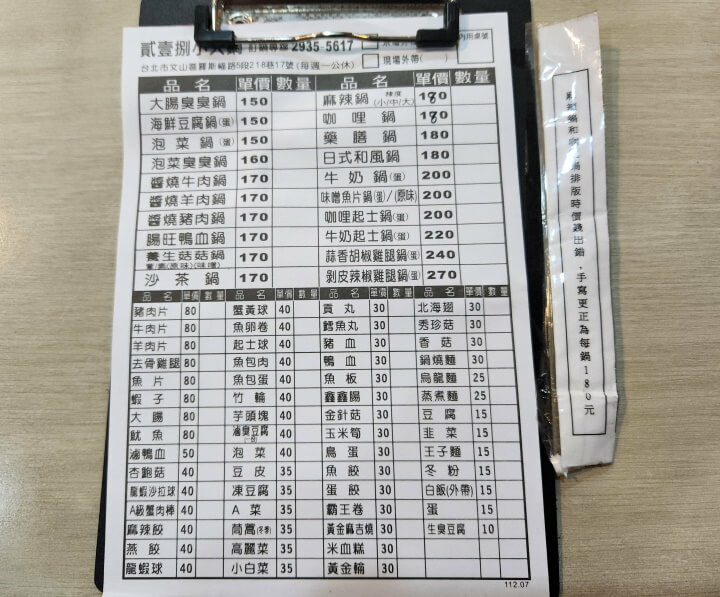 貳壹捌小火鍋 訂鍋專線 2935-5617 內用桌號
台北市文山區羅斯福路5段218巷17號(每週一公休) 現場外帶( )
品名 單價 數量 品名 單價 數量
大腸臭臭鍋 150 麻辣鍋 辣度 (小/中/大) 180
海鮮豆腐鍋(蛋) 150 咖哩鍋 180
泡菜鍋(蛋) 150 藥膳鍋 180
泡菜臭臭鍋 160 日式和風鍋 180
醬燒牛肉鍋 170 牛奶鍋(蛋) 200
醬燒羊肉鍋 170 味噌魚片鍋(蛋)/(原味) 200
醬燒豬肉鍋 170 咖哩起士鍋(蛋) 200
腸旺鴨血鍋 170 牛奶起士鍋(蛋) 220
養生菇菇鍋 170 蒜香胡椒雞腿鍋(蛋) 240
沙茶鍋 170 剝皮辣椒雞腿鍋(蛋) 270
品名 單價 數量 品名 單價 數量 品名 單價 數量 品名 單價 數量
豬肉片 80 蟹黃球 40 貢丸 30 北海翅 30
牛肉片 80 魚卵卷 40 鱈魚丸 30 秀珍菇 30
羊肉片 80 起士球 40 豬血 30 香菇 30
去骨雞腿 80 魚包肉 40 鴨血 30 鍋燒麵 30
魚片 80 魚包蛋 40 魚板 30 烏龍麵 25
蝦子 80 竹輪 40 鑫鑫腸 30 蒸煮麵 25
大腸 80 芋頭塊 40 金針菇 30 豆腐 15
魷魚 80 滷臭豆腐 40 玉米筍 30 韭菜 15
滷鴨血 50 泡菜 40 鳥蛋 30 王子麵 15
杏鮑菇 40 豆皮 35 魚餃 30 冬粉 15
龍蝦沙拉球 40 凍豆腐 35 蛋餃 30 白飯(外帶) 15
A級蟹肉棒 40 A菜 35 霸王卷 30 蛋 15
麻辣餃 40 茼蒿(冬季) 35 黃金麻吉燒 30 生臭豆腐 10
燕餃 40 高麗菜 35 米血糕 30
龍蝦球 40 小白菜 35 黃金輪 30
112.07
排版時價錢出錯，手寫更正為每鍋180元